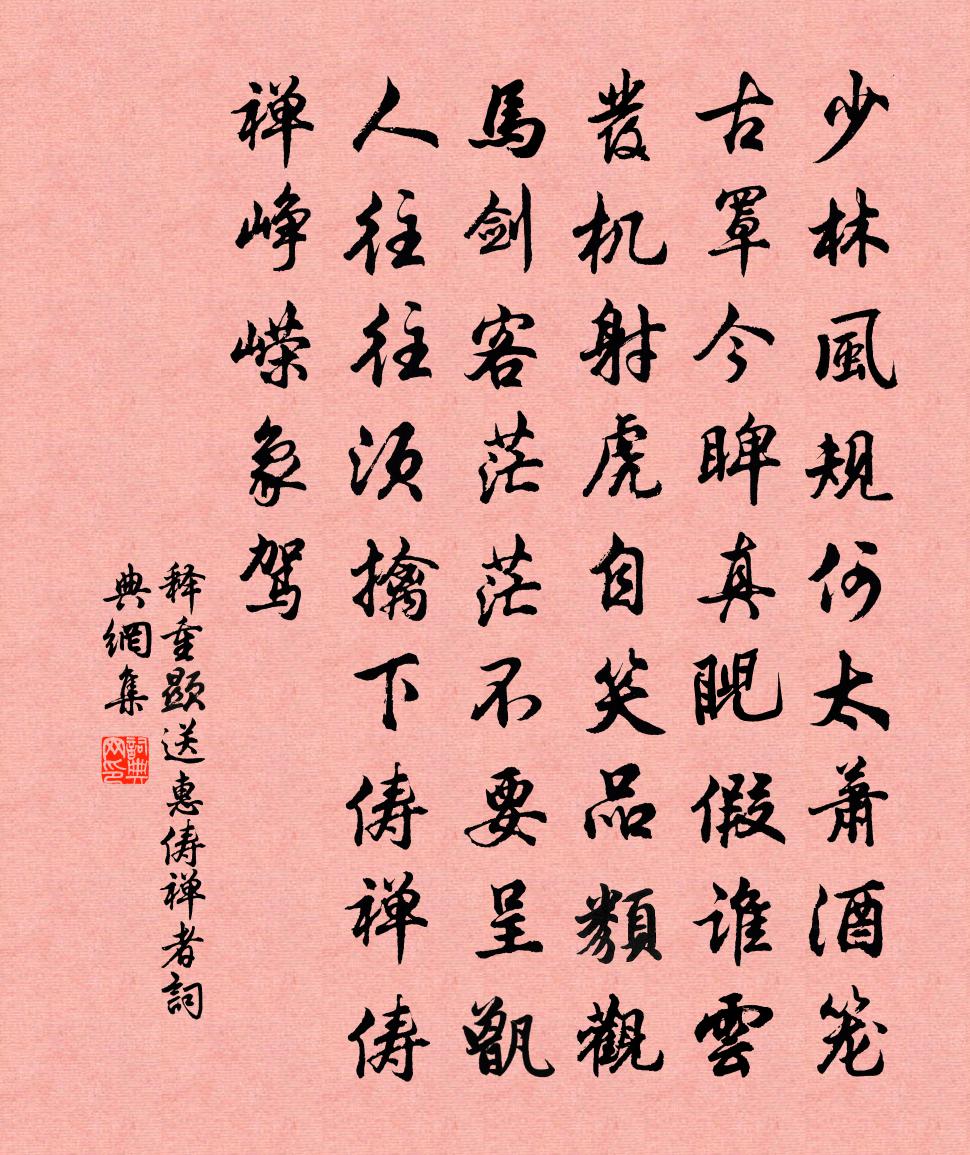 少林風規何太萧酒笼
古罩今睥真睨假谁雲
發机射虎自笑品類觀
馬剑客茫茫不要呈甑
人往往须擒下俦禅俦
禅峥嵘象驾
释重顯送惠俦禅者詞
典網集
詞典网印